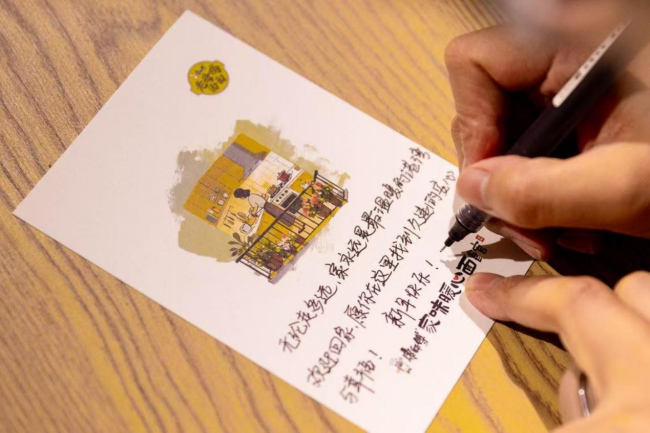 无论走多远，家永远是最温暖的港湾
欢迎回家，愿你在这里找到久违的安心
与幸福！ 新年快乐！
家味暖心面馆